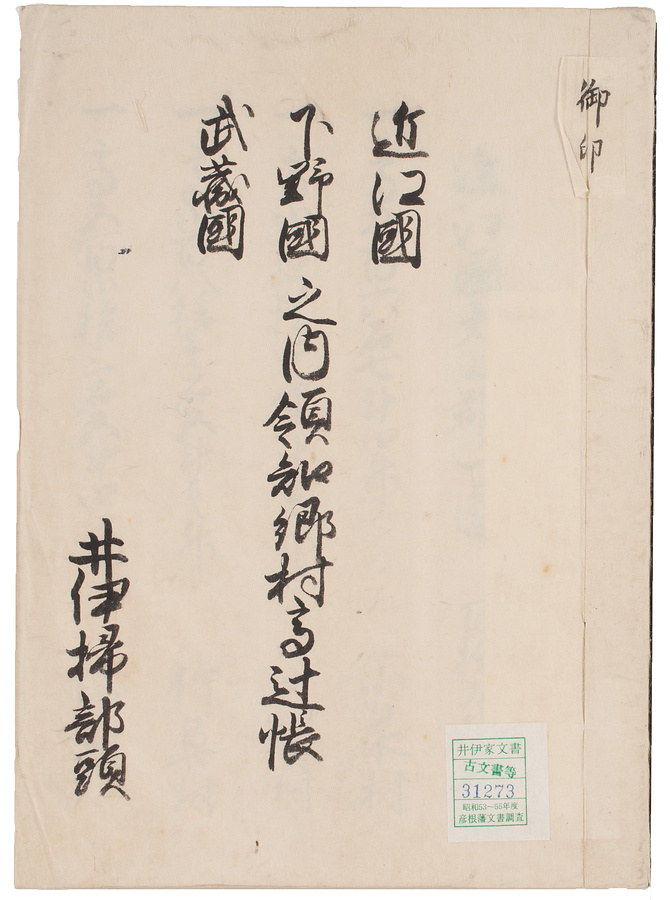 御印
近江國
下野國之内領知郷村高辻帳
武藏國
井伊掃部頭
井伊家文書
古文書等
31273
昭和53～55年度
彦根藩文書調査